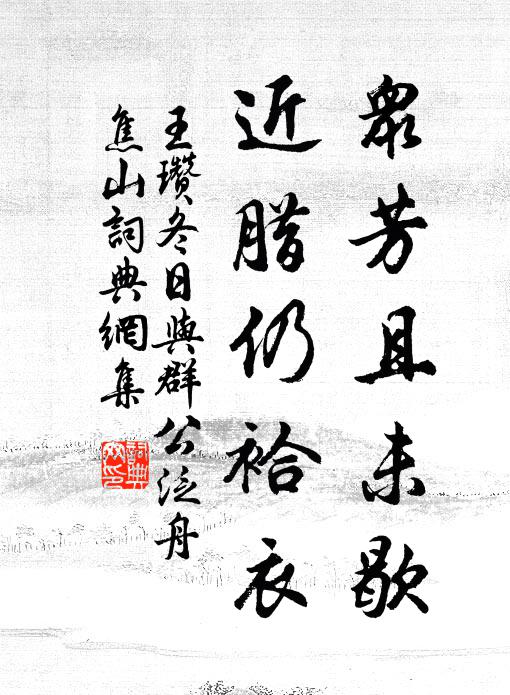 眾芳且未歇
近腊仍袷衣
王瓚冬日與群公泛舟
焦山詞典網集
詞典